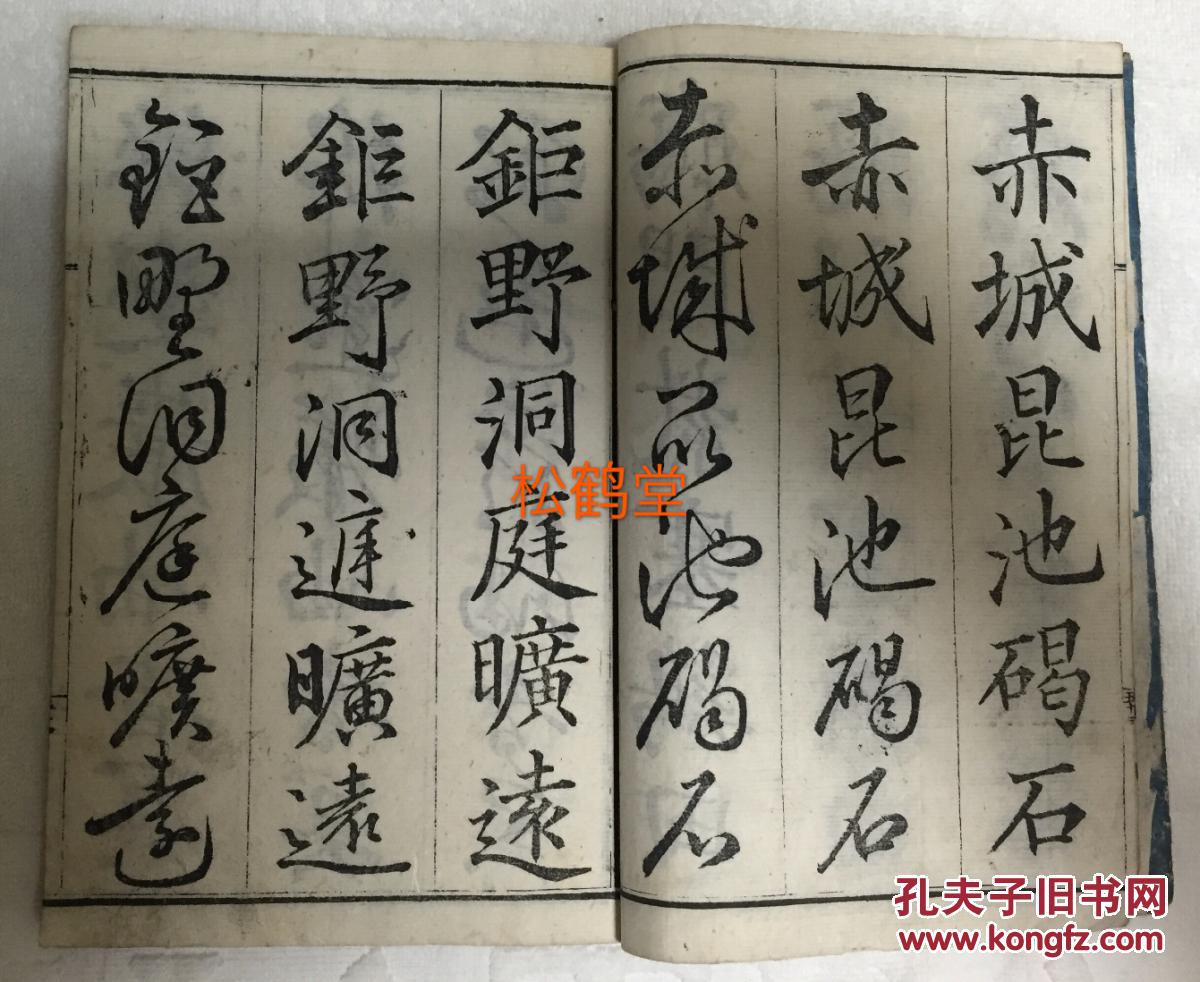 赤城昆池碣石
赤城昆池碣石
赤城昆池碣石
鉅野洞庭曠遠
鉅野洞庭曠遠
鉅野洞庭曠遠
松鹤堂
孔夫子旧书网
www.kongfz.com